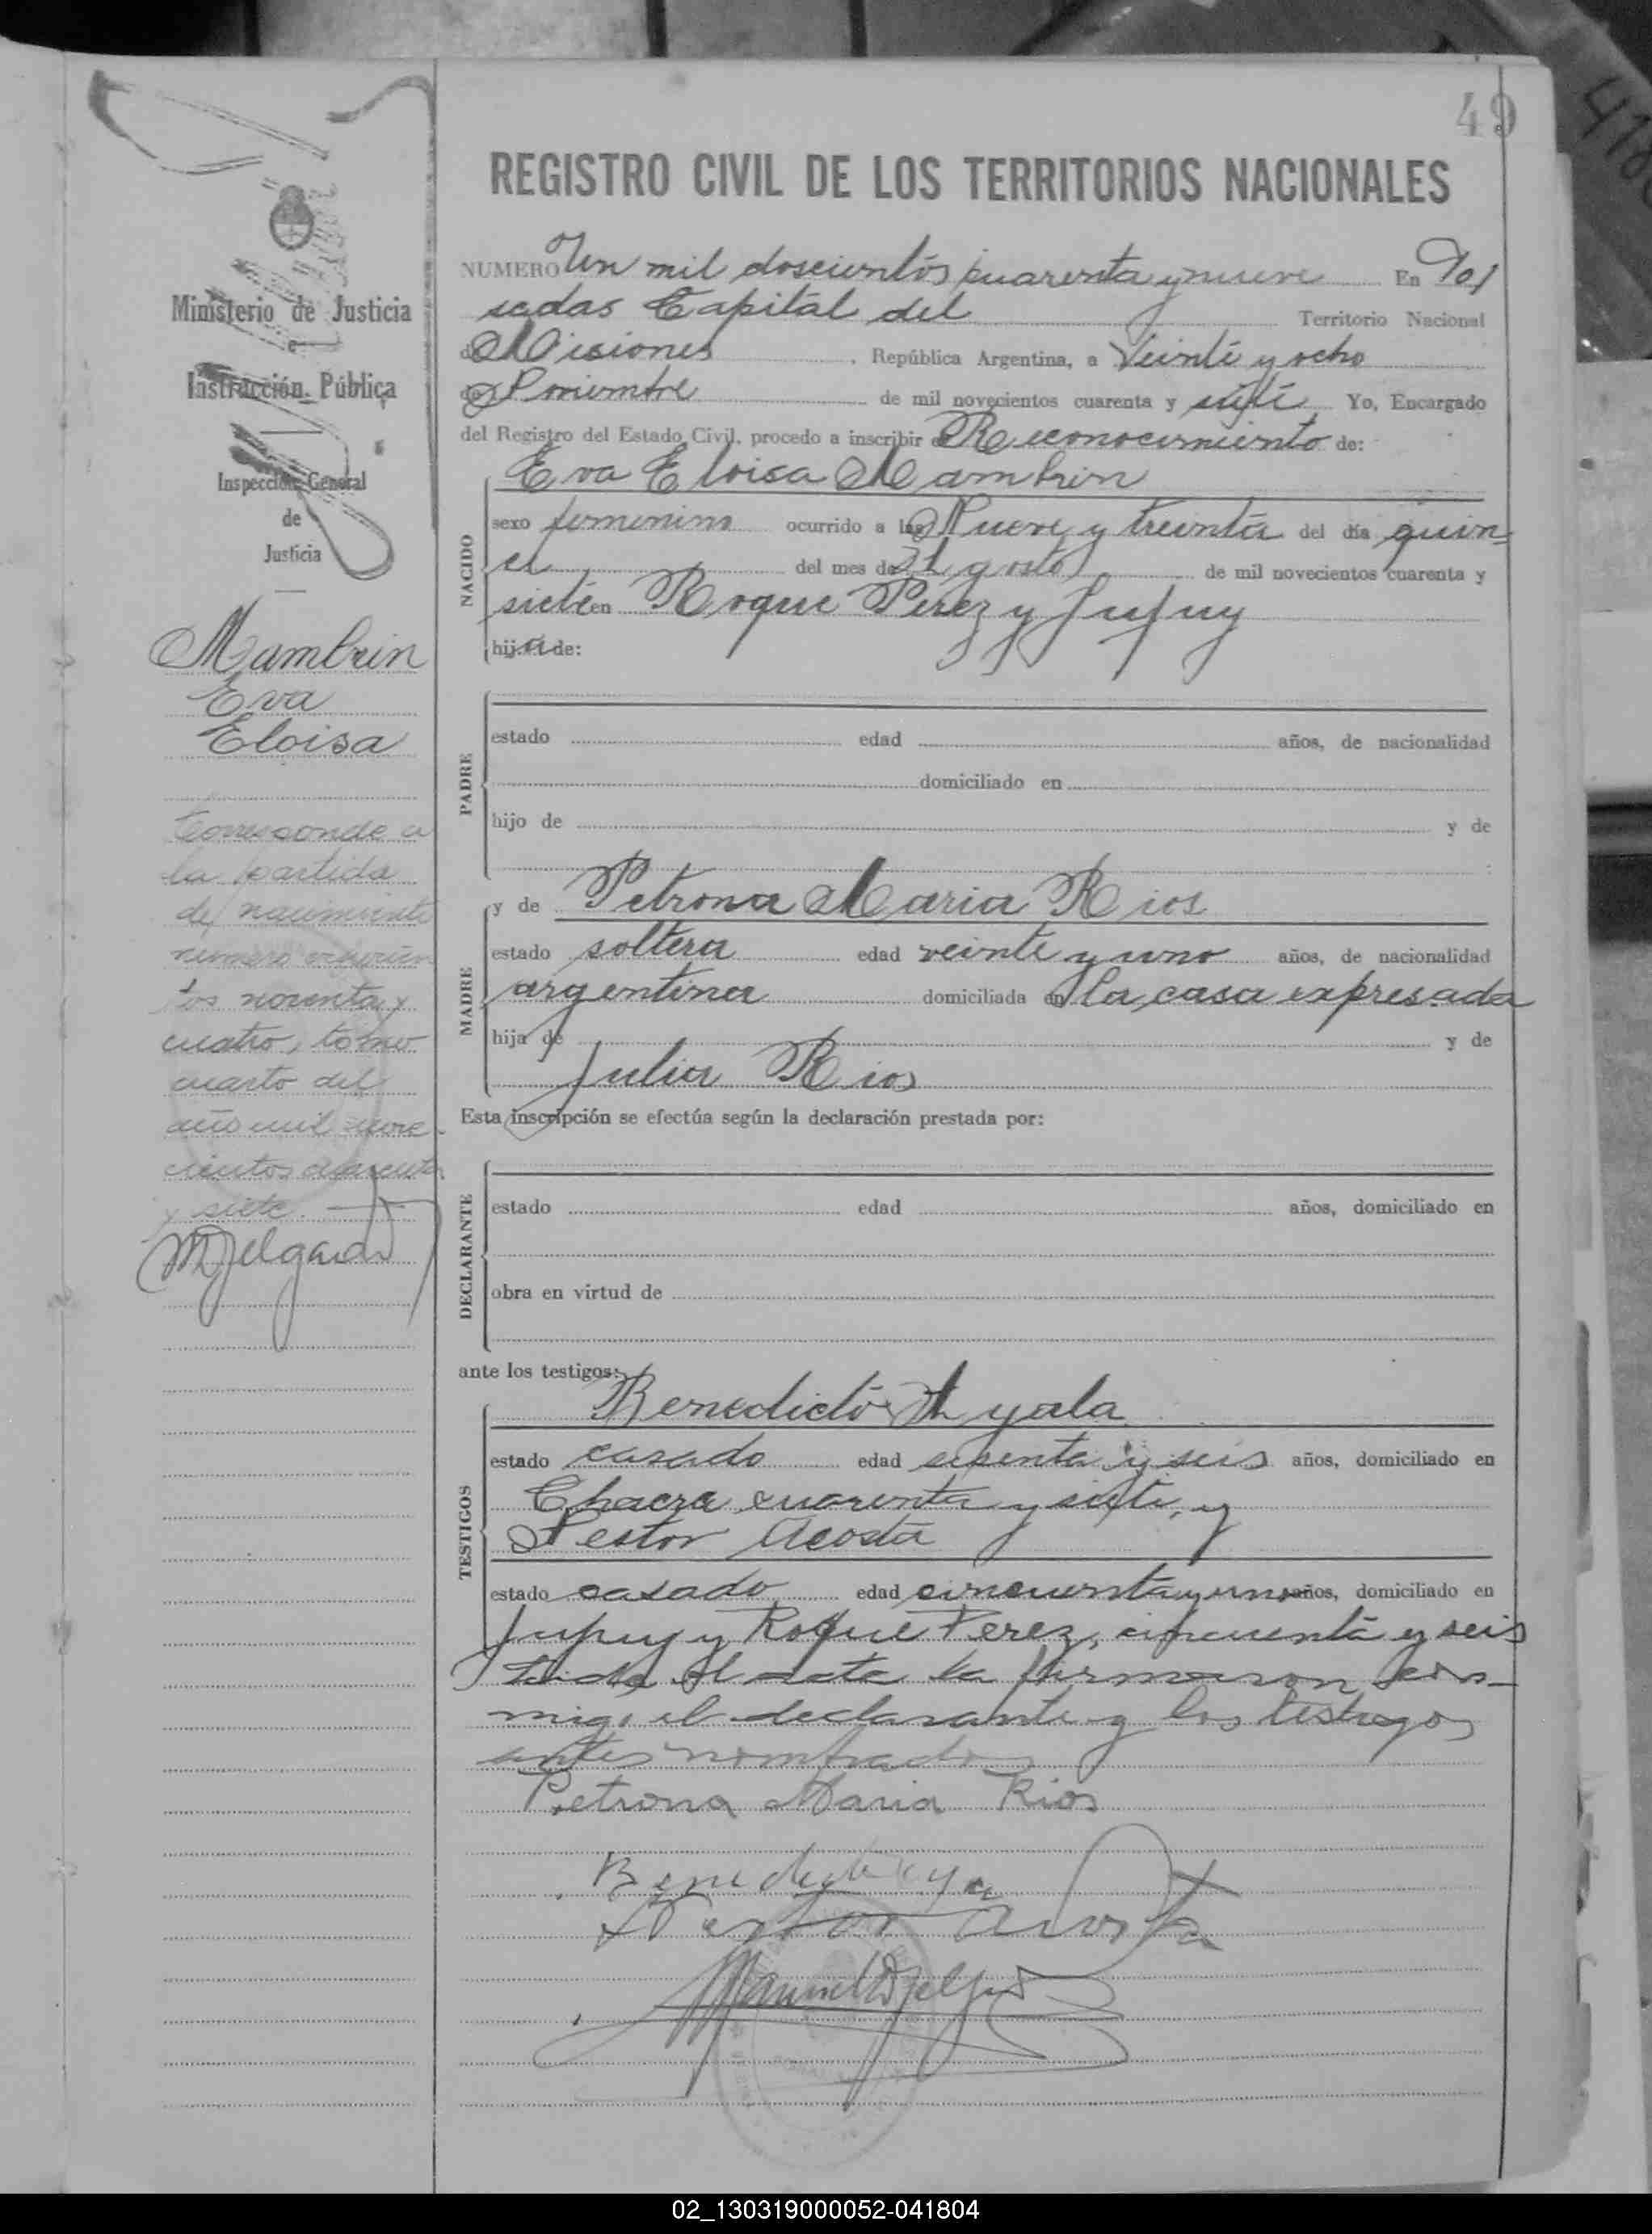 49
REGISTRO CIVIL DE LOS TERRITORIOS NACIONALES
NUMERO Un mil doscientos cuarenta y nueve En Po-
sadas Capital del Territorio Nacional
de Misiones, República Argentina, a Veinte y ocho
de Noviembre de mil novecientos cuarenta y siete Yo, Encargado
del Registro del Estado Civil, procedo a inscribir el Reconocimiento de:
NACIDO
Eva Eloisa Mambrin
sexo femenino ocurrido a las Nueve y treinta del día quin-
ce del mes de Agosto de mil novecientos cuarenta y
siete en Roque Perez y Jujuy
hija de:
PADRE
estado edad años, de nacionalidad
domiciliado en
hijo de y de
MADRE
y de Petrona Maria Rios
estado soltera edad veinte y uno años, de nacionalidad
argentina domiciliada en la casa expresada
hija de y de
Julia Rios
Esta inscripción se efectúa según la declaración prestada por:
DECLARANTE
estado edad años, domiciliado en
obra en virtud de
ante los testigos:
TESTIGOS
Benedicto Ayala
estado casado edad sesenta y seis años, domiciliado en
Chacra cuarenta y siete, y
Nestor Acosta
estado casado edad cincuenta y uno años, domiciliado en
Jujuy y Roque Perez, cincuenta y seis
el acta la firmaron con-
migo el declarante y los testigos
antes nombrados
Petrona Maria Rios
Nestor Acosta
Manuel Delgado
Ministerio de Justicia
e
Instrucción Pública
Inspección General
de
Justicia
Mambrin
Eva
Eloisa
Corresponde a
la partida
de nacimiento
número
tos noventa y
cuatro, tomo
cuarto del
año mil nove
cientos cuarenta
y siete.
M Delgado
02_130319000052-041804